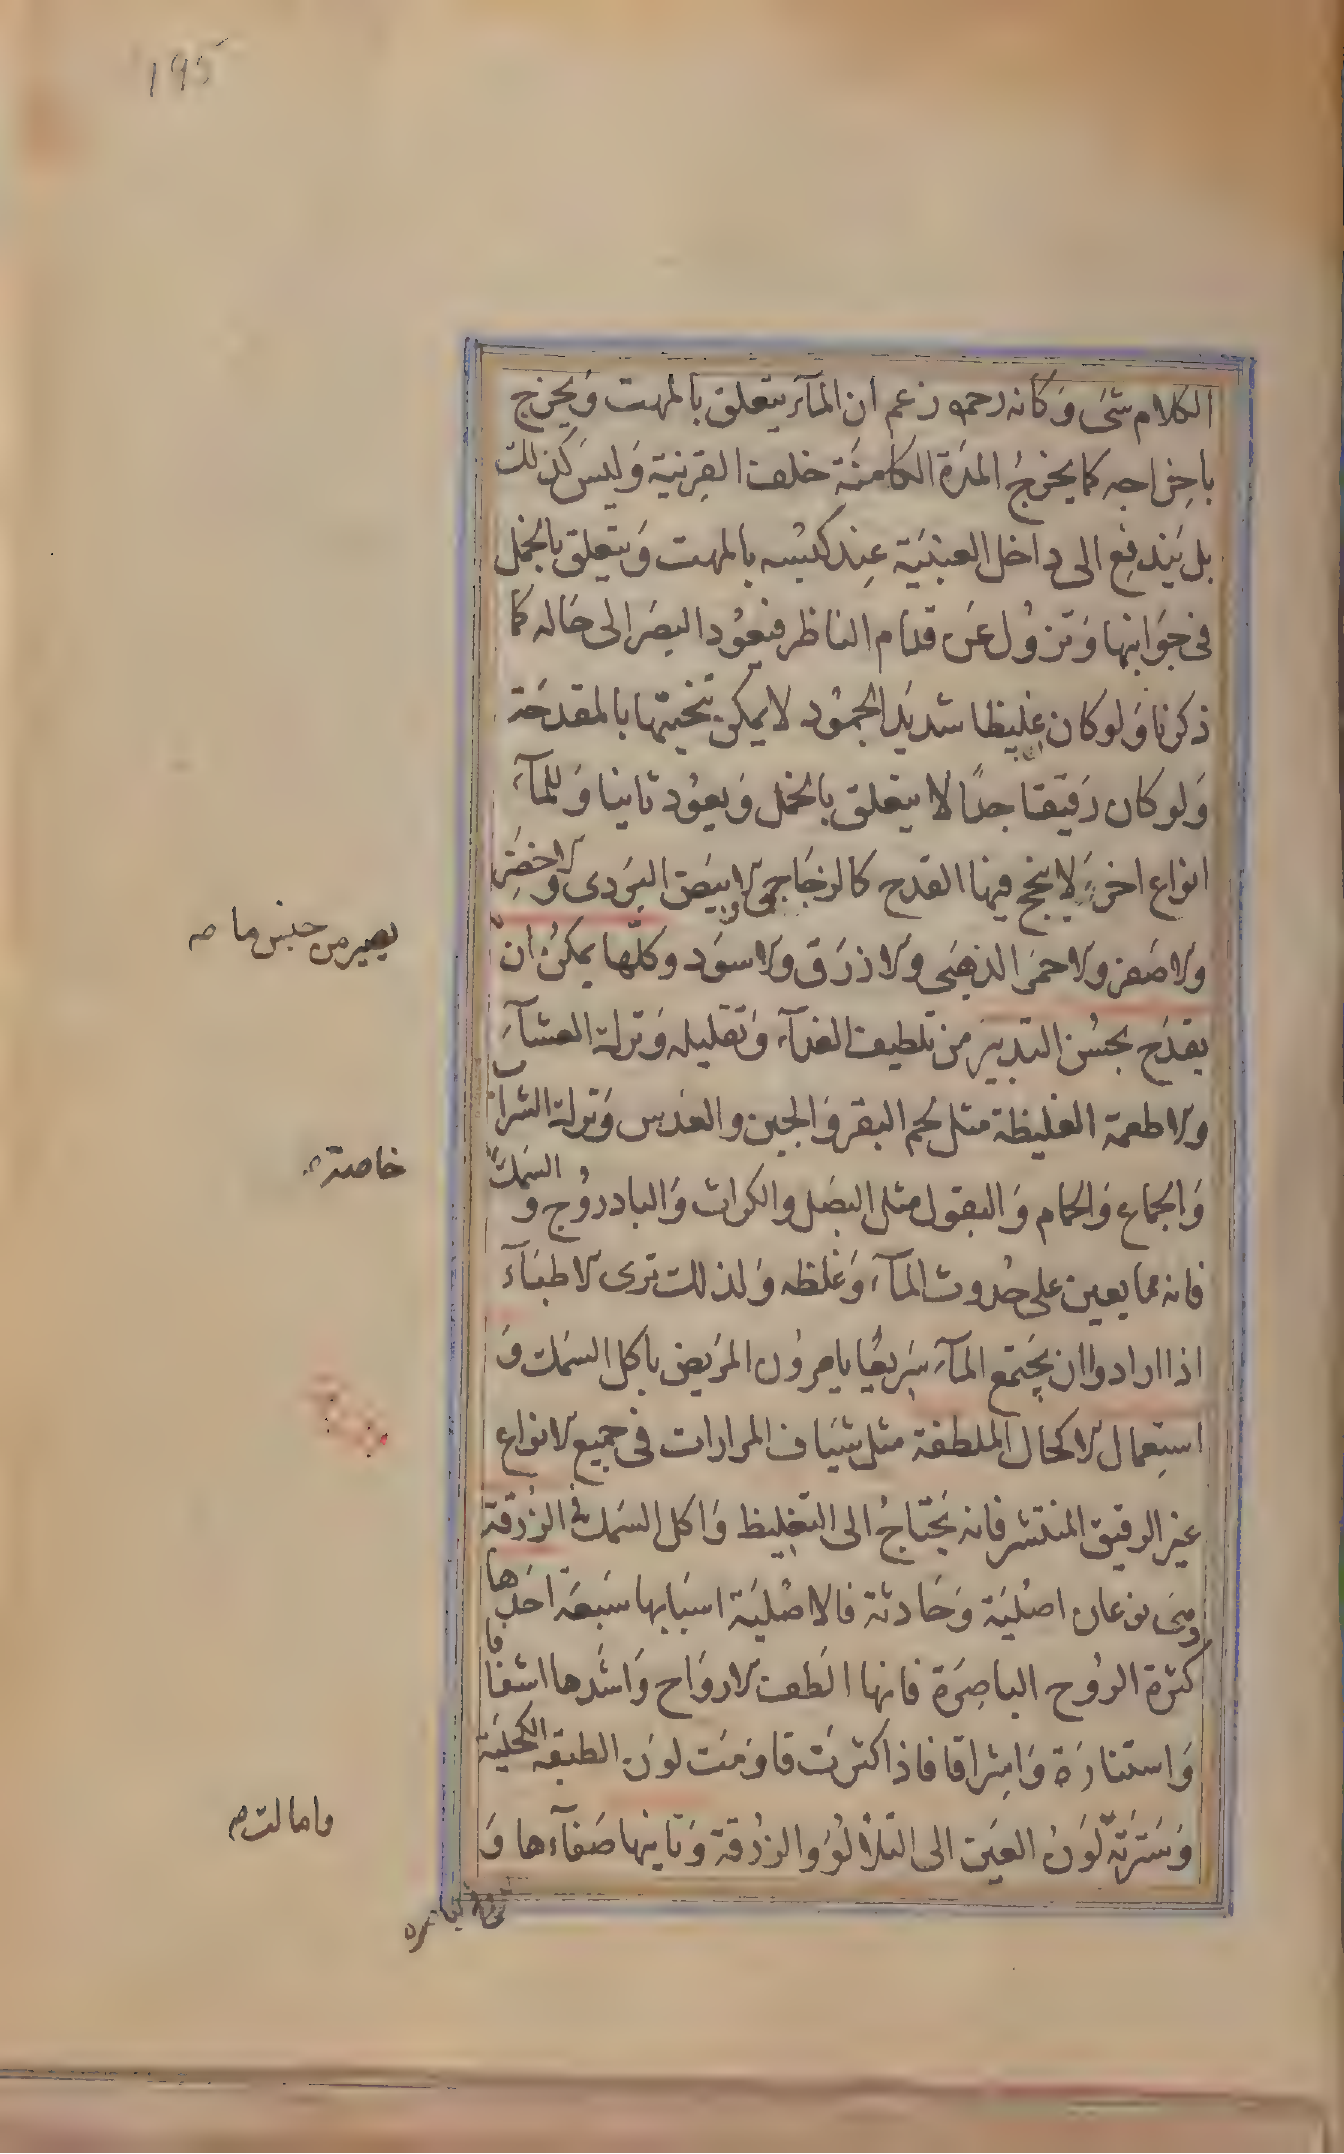 195
الكلام شئ وكانه رحمه زعم ان المآء يتعلق بالمهت ويخرج
باخراجه كما يخرج المدة الكامنة خلف القرنية وليس كذلك
بل يندفع الى داخل العنبية عند كبسه بالمهت ويتعلق بالخمل
فى جوانبها وتزول عن قدام الناظر فيعود البصر الى حاله كما
ذكرنا ولو كان غليظا شديد الجمود لا يمكن تنحيتها بالمقدحة
ولو كان رقيقا جدا لا يتعلق بالخمل ويعود ثانيا وللمآء
انواع اخر لا ينجح فيها القدح كالزجاجى والابيض البردى والاخضر
والاصفر والاحمر الذهبى والازرق والاسود وكلها يمكن ان
يصير من جنس ما صح
يقدح بحسن التدبير من تلطيف الغذآء وتقليله وترك العشآء
والاطعمة الغليظة مثل لحم البقر والجبن والعدس وترك الشراب
والجماع والحمام والبقول مثل البصل والكراث والبادروج والسمك
خاصة صح
فانه مما يعين على حدوث المآء وغلظه ولذلك ترى الاطبآء
اذا ارادوا ان يجتمع المآء سريعا يامرون المريض باكل السمك و
استعمال الاكحال الملطفة مثل شياف المرارات فى جميع الانواع
غير الرقيق المنتشر فانه يحتاج الى التغليظ واكل السمك فى الزرقة
وهى نوعان اصلية وحادثة فالاصلية اسبابها سبعة احدها
كثرة الروح الباصرة فانها الطف الارواح واشدها اشفافا
واستنارة واشراقا فاذا كثرت قاومت لون الطبقة الكحلية
وسترته لون العين الى التلألؤ والزرقة وثانيها صفآءها و
وامالت صح